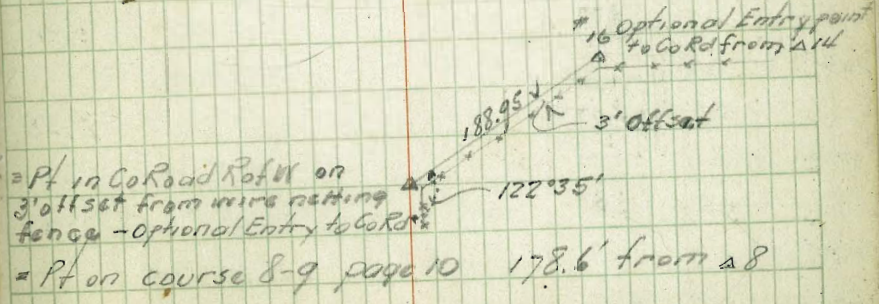 * Optional Entry point
16 to CoRd from △14
188.95
3' Offset
= Pt in CoRoad R of W on
3' offset from wire netting
fence - Optional Entry to CoRd
122°35'
= Pt on course 8-9 page 10 178.6' from △8